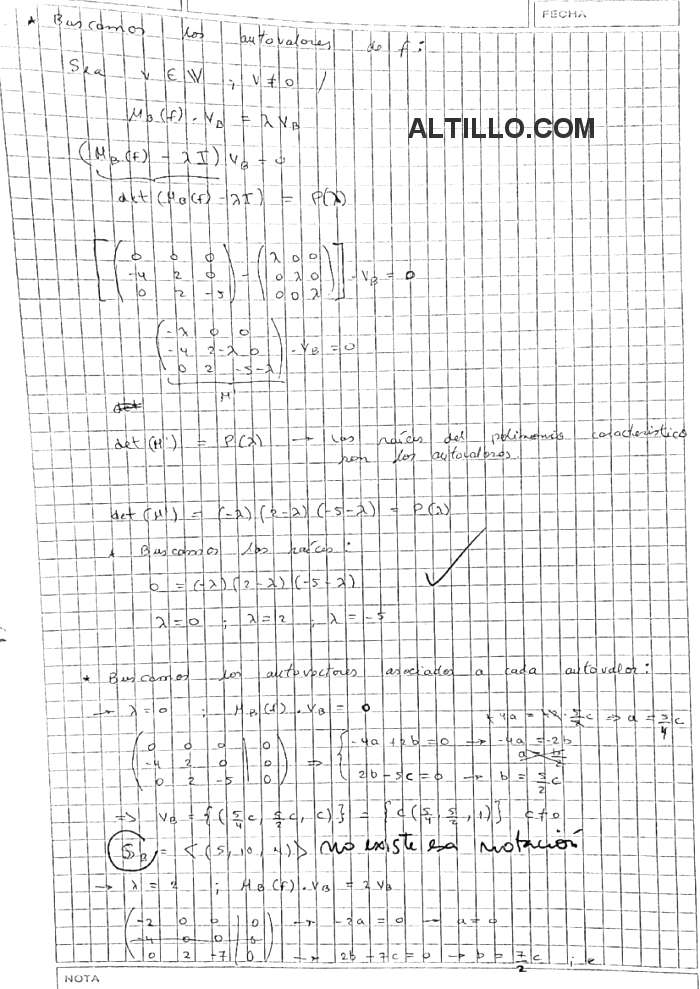 FECHA
* Buscamos los autovalores de f:
Sea v ∈ W ; v ≠ 0 /
M_B(f) . v_B = λ v_B
ALTILLO.COM
(M_B(f) - λI) v_B = 0
det (M_B(f) - λI) = P(λ)
[ ( 0 0 0 ) - ( λ 0 0 ) ]
( -4 2 0 ) ( 0 λ 0 ) . v_B = 0
( 0 2 -5 ) ( 0 0 λ )
( -λ 0 0 )
( -4 2-λ 0 ) . v_B = 0
( 0 2 -5-λ )
M'
det
det (M') = P(λ) → las raíces del polinomio característico
son los autovalores.
det (M') = (-λ)(2-λ)(-5-λ) = P(λ)
* Buscamos las raíces:
0 = (-λ)(2-λ)(-5-λ)
λ=0 ; λ=2 ; λ=-5
* Buscamos los autovectores asociados a cada autovalor:
→ λ=0 ; M_B(f) . v_B = 0
⇒ a = 5/4 c
( 0 0 0 | 0 )
( -4 2 0 | 0 ) ⇒ { -4a + 2b = 0 → -4a = -2b
( 0 2 -5 | 0 ) { 2b - 5c = 0 → b = 5/2 c
⇒ v_B = {(5/4 c, 5/2 c, c)} = {c(5/4, 5/2, 1)} c≠0
S_B = <(5,10,4)> no existe esa notación
→ λ=2 ; M_B(f) . v_B = 2v_B
( -2 0 0 | 0 ) → -2a = 0 → a=0
( -4 0 0 | 0 )
( 0 2 -7 | 0 ) → 2b - 7c = 0 → b = 7/2 c
NOTA